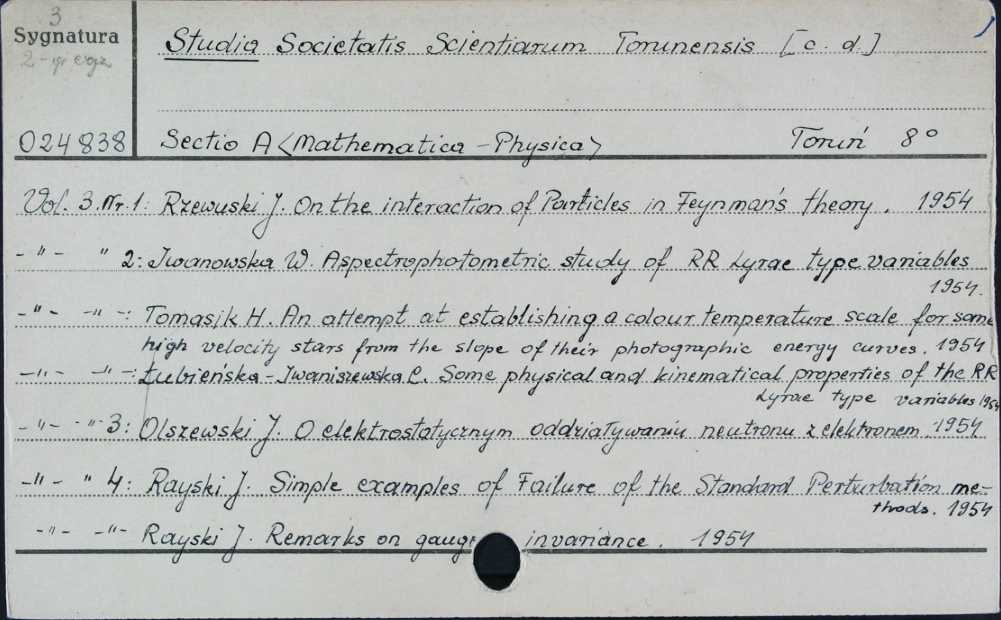 3
Sygnatura
Studia Societatis Scientiarum Torunensis [c. d.]
2-gi egz
024838
Sectio A <Mathematica - Physica> Toruń 8°
Vol. 3. Nr. 1: Rzewuski J. On the interaction of Particles in Feynman's theory. 1954
-"- " 2: Iwanowska W. A spectrophotometric study of RR Lyrae type variables
1954.
-"- -"-: Tomasik H. An attempt at establishing a colour temperature scale for some
high velocity stars from the slope of their photographic energy curves. 1954
-"- -"-: Łubieńska-Iwaniszewska C. Some physical and kinematical properties of the RR
Lyrae type variables 1954
-"- -"- 3: Olszewski J. O elektrostatycznym oddziaływaniu neutronu z elektronem. 1954
-"- " 4: Rayski J. Simple examples of Failure of the Standard Perturbation me-
thods. 1954
-"- -"- Rayski J. Remarks on gauge invariance. 1954